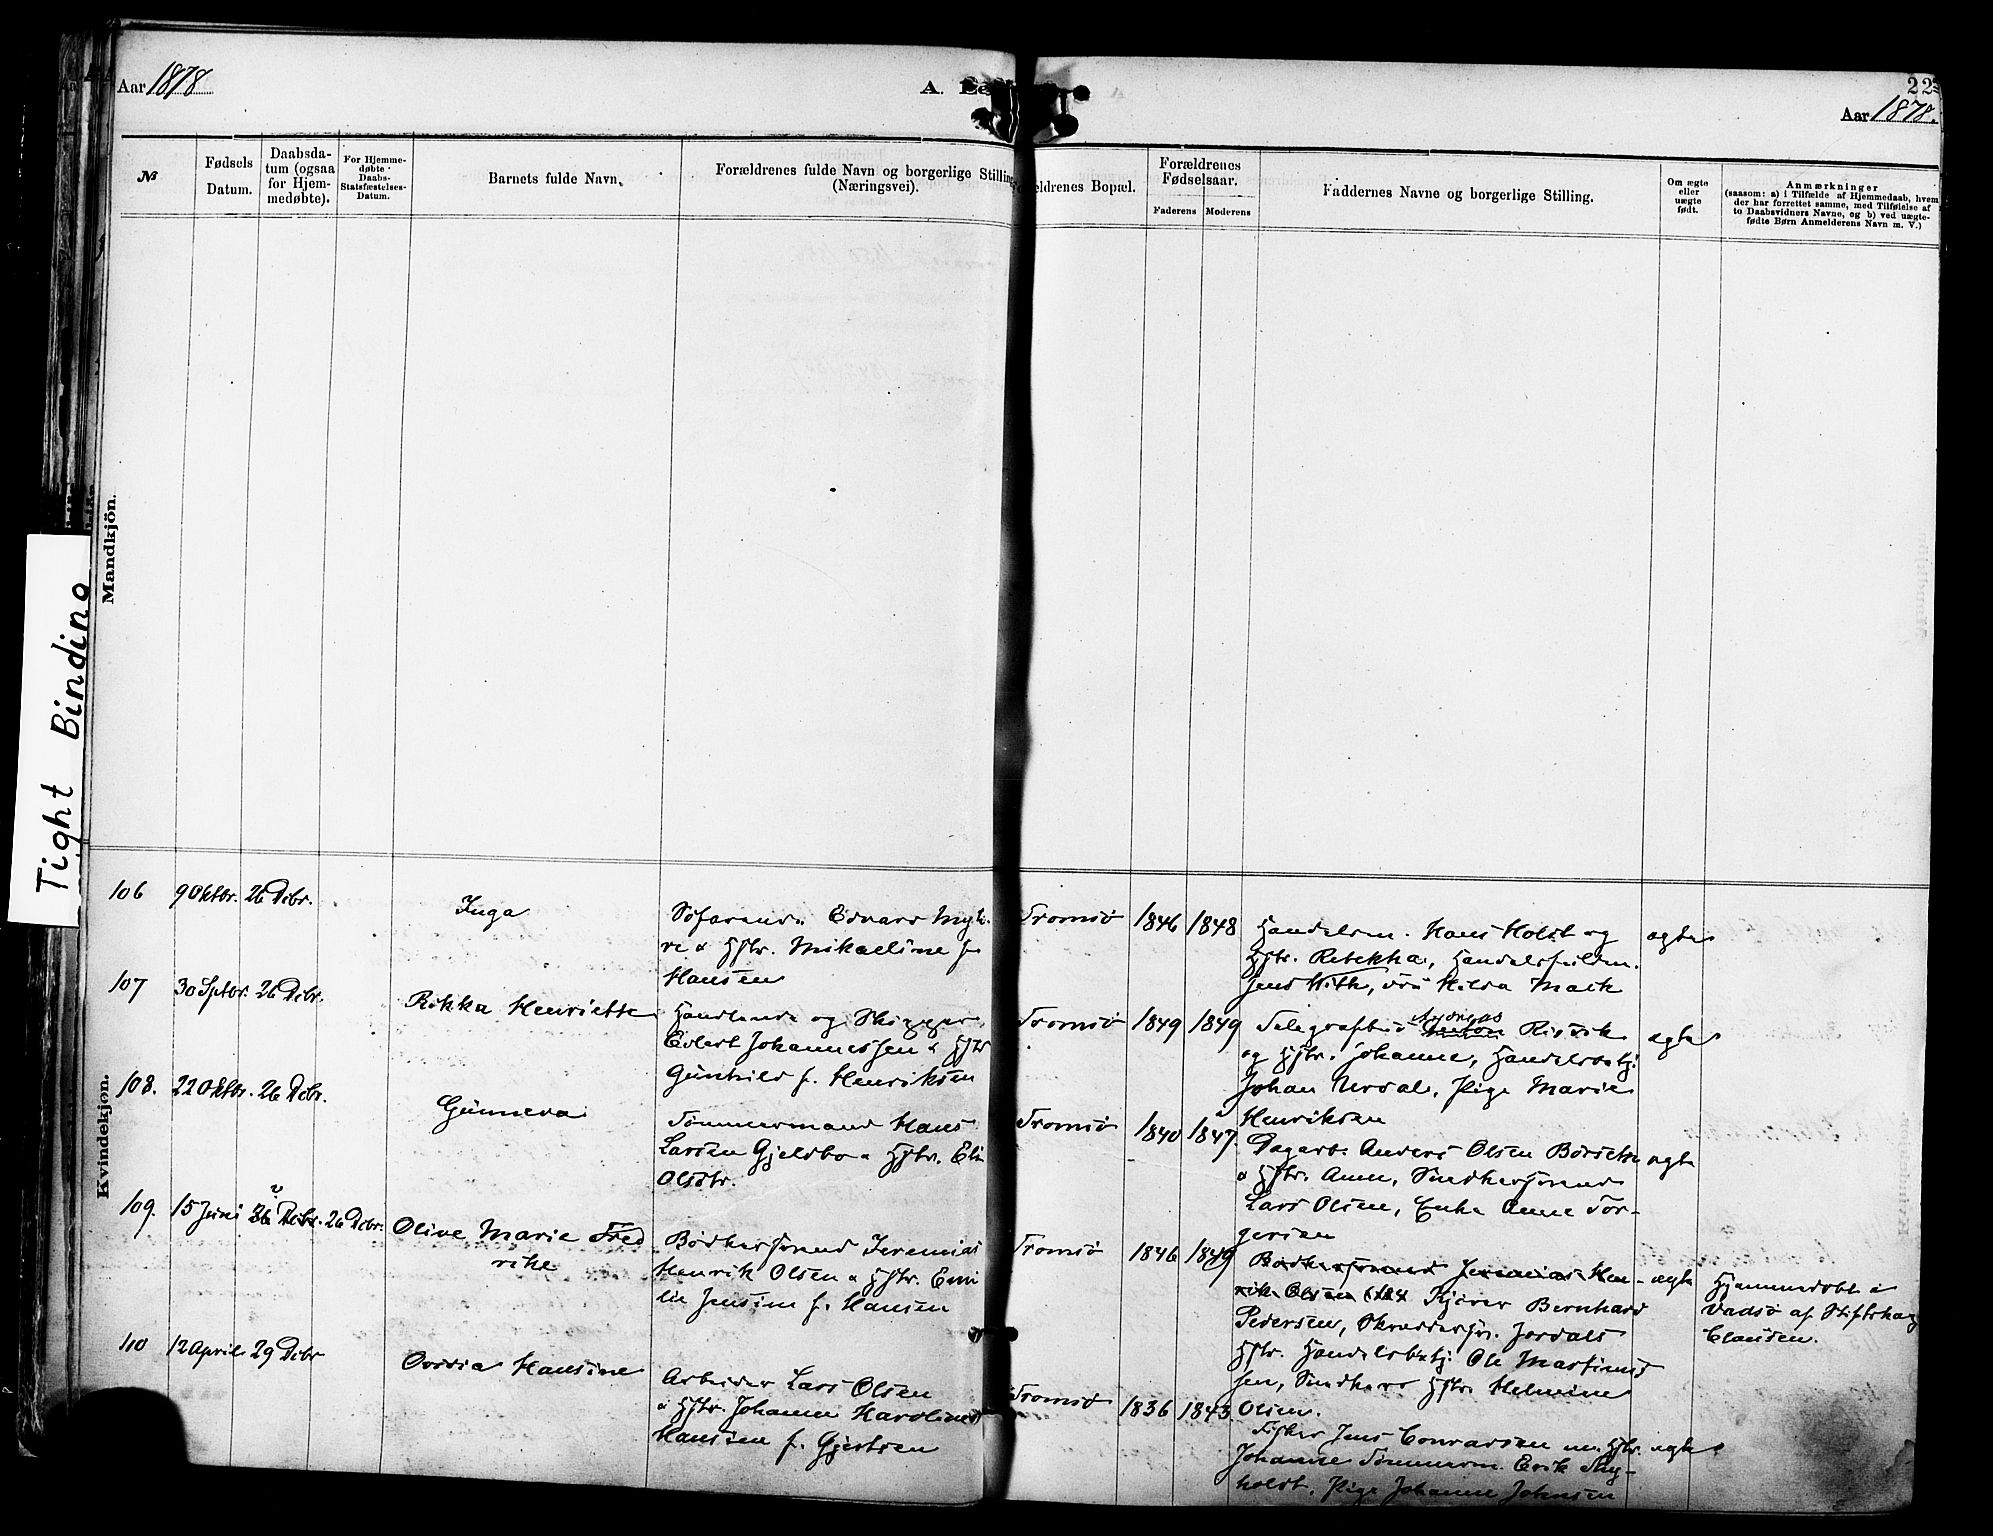 Aar 1878
A. Le
22
Aar 1878.
№
Fødsels
Datum.
Daabsda-
tum (ogsaa
for Hjem-
medøbte).
For Hjemme-
døbte
Daabs-
Statsfæstelses-
Datum.
Barnets fulde Navn.
Forældrenes fulde Navn og borgerlige Stilling
(Næringsvei).
ældrenes Bopæl.
Forældrenes
Fødselsaar.
Faderens
Moderens
Faddernes Navne og borgerlige Stilling.
Om ægte
eller
uægte
født.
Anmærkninger
(saasom: a) i Tilfælde af Hjemmedaab, hvem
der har forrettet samme, med Tilføielse af
to Daabsvidners Navne, og b) ved uægte-
fødte Børn Anmelderens Navn m. V.)
Mandkjön.
Tight Binding
Kvindekjön.
106 9 Oktbr. 26 Debr.
Inga
Søfarende Edvard
& Hstr. Mikaeline f.
Hansen
Tromsø
1846 1848
Handelsm. Hans Holst og
Hstr. Rebekka,
Jens Hilda Mack
ægte
107 30 Septbr. 26 Debr.
Rikka Henriette
Handlende og Skipper
Edvert Johannessen & Hstr
Gunhild f. Henriksen
Tromsø
1849 1849
Andreas Risvik
og Hstr. Johanne,
Johan Pige Marie
Henriksen
ægte
108. 22 Oktbr. 26 Debr.
Gunneva
Tømmermand Hans
Larsen Gjeldbo & Hstr. Eli
Olsdtr.
Tromsø
1840 1847
Dagarb. Anders Olsen
& Hstr. Anne, Snedkersvend
Lars Olsen, Enke Anne Tor-
gersen
ægte
109. 15 Juni 26 Debr. 26 Debr.
Olive Marie Fred
rike
Bødkersvend Jeremias
Henrik Olsen & Hstr. Emi
lie Jensine f. Hansen
Tromsø
1846 1849
Bødkersvend Jeremias Hen-
rik Olsen Bernhard
Pedersen, Jordals
Hstr. Ole Martinus
sen, Snedker Hstr. Helmine
Olsen.
ægte
Hjemmedøbt i
Vadsø af
Clausen.
110 12 April 29 Debr
Ovidia Hansine
Arbeider Lars Olsen
& Hstr. Johanne Karoline
Hansen f. Gjertsen
Tromsø
1836 1843
Fisker Jens Conradsen m. Hstr.
Johanne Tømmerm. Erik
holdt, Pige Johanne Johnsen
ægte